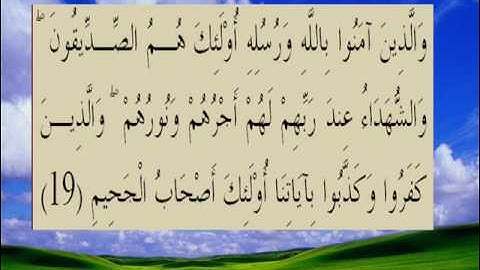 وَالَّذِينَ آمَنُوا بِاللَّهِ وَرُسُلِهِ أُوْلَئِكَ هُمُ الصِّدِّيقُونَ ۖ
وَالشُّهَدَاءُ عِندَ رَبِّهِمْ لَهُمْ أَجْرُهُمْ وَنُورُهُمْ ۖ وَالَّذِينَ
كَفَرُوا وَكَذَّبُوا بِآيَاتِنَا أُوْلَئِكَ أَصْحَابُ الْجَحِيمِ (19)